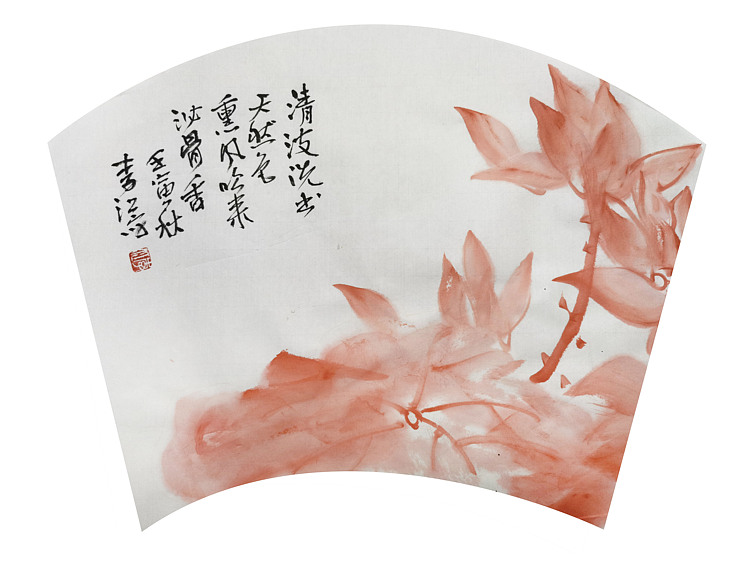 清波洗出
天然色
熏风吹来
沁骨香
壬寅秋
李